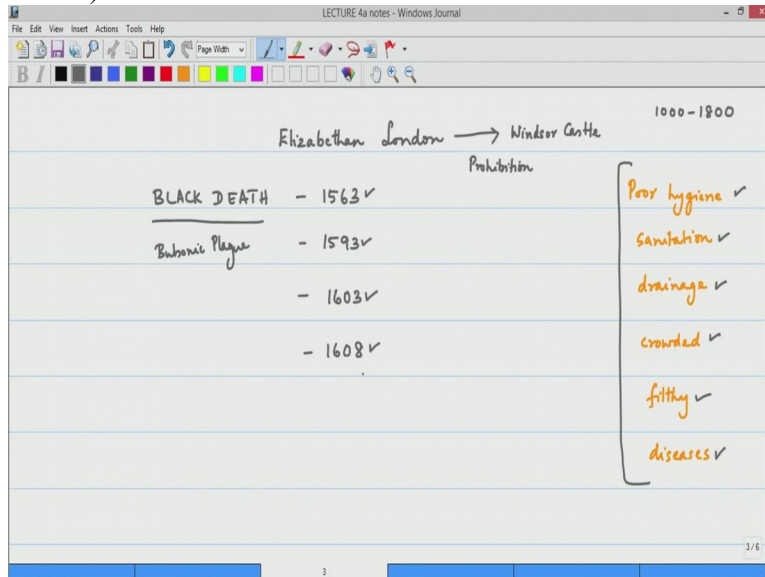 LECTURE 4a notes - Windows Journal
File Edit View Insert Actions Tools Help
Page Width
B I
1000-1800
Elizabethan London → Windsor Castle
Prohibition
BLACK DEATH - 1563 ✓
Bubonic Plague - 1593 ✓
- 1603 ✓
- 1608 ✓
Poor hygiene ✓
sanitation ✓
drainage ✓
crowded ✓
filthy ✓
diseases ✓
3/6
3